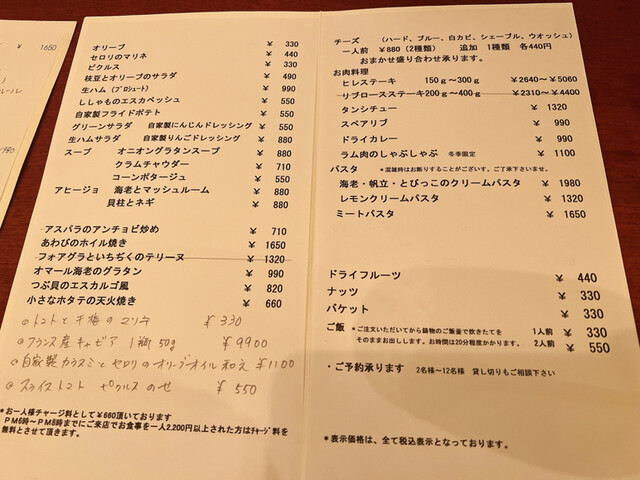 ¥ 1650
オリーブ ¥ 330
セロリのマリネ ¥ 440
ピクルス ¥ 330
枝豆とオリーブのサラダ ¥ 490
生ハム（プロシュート） ¥ 990
ししゃものエスカベッシュ ¥ 550
自家製フライドポテト ¥ 550
グリーンサラダ 自家製にんじんドレッシング ¥ 550
生ハムサラダ 自家製りんごドレッシング ¥ 880
スープ オニオングラタンスープ ¥ 880
クラムチャウダー ¥ 710
コーンポタージュ ¥ 550
アヒージョ 海老とマッシュルーム ¥ 880
貝柱とネギ ¥ 880
アスパラのアンチョビ炒め ¥ 710
あわびのホイル焼き ¥ 1650
フォアグラといちぢくのテリーヌ ¥ 1320
オマール海老のグラタン ¥ 990
つぶ貝のエスカルゴ風 ¥ 820
小さなホタテの天火焼き ¥ 660
◎トマトと干梅のマリネ ¥ 330
◎フランス産キャビア 1瓶 50g ¥ 9900
◎自家製カラスミとセロリのオリーブオイル和え ¥1100
◎スライストマト ピクルスのせ ¥ 550
*お一人様チャージ料として¥660頂いております
PM6時～PM8時までにご来店でお食事を一人2,200円以上された方はﾁｬｰｼﾞ料を
無料とさせて頂きます。
チーズ （ハード、ブルー、白カビ、シェーブル、ウオッシュ）
一人前 ¥880（2種類） 追加 1種類 各440円
おまかせ盛り合わせ承ります。
お肉料理
ヒレステーキ 150g～300g ¥2640～¥5060
リブロースステーキ200g～400g ¥2310～¥4400
タンシチュー ¥ 1320
スペアリブ ¥ 990
ドライカレー ¥ 990
ラム肉のしゃぶしゃぶ 冬季限定 ¥ 1100
パスタ *混雑時はお断りすることがございす。ご了承下さいませ。
海老・帆立・とびっこのクリームパスタ ¥ 1980
レモンクリームパスタ ¥ 1320
ミートパスタ ¥ 1650
ドライフルーツ ¥ 440
ナッツ ¥ 330
バケット ¥ 330
ご飯 *ご注文いただいてから鍋物のご飯釜で炊きたてを 1人前 ¥ 330
そのままお出しします。お時間は20分程度かかります。 2人前 ¥ 550
・ご予約承ります 2名様～12名様 貸し切りもご相談下さい
*表示価格は、全て税込表示となっております。